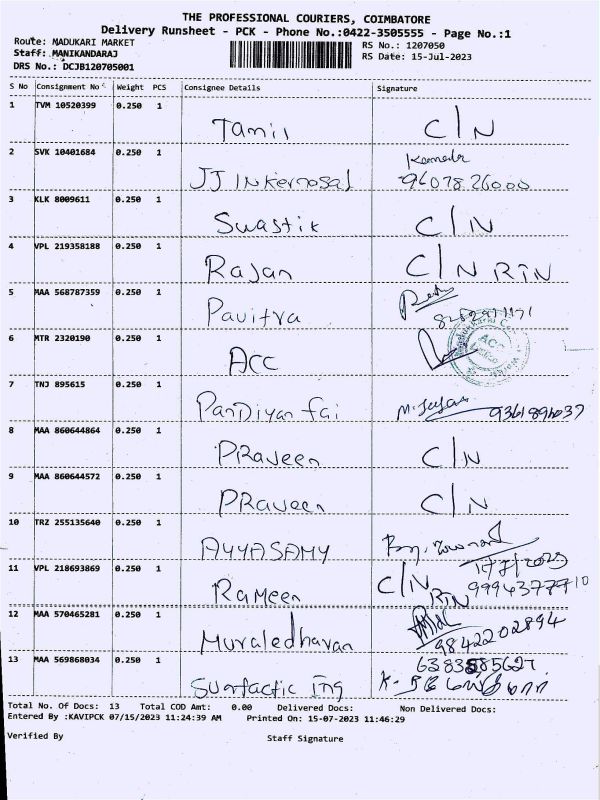 THE PROFESSIONAL COURIERS, COIMBATORE
Delivery Runsheet - PCK - Phone No.:0422-3505555 - Page No.:1
Route: MADUKARI MARKET
RS No.: 1207050
Staff: MANIKANDARAJ
RS Date: 15-Jul-2023
DRS No.: DCJB120705001
S No Consignment No Weight PCS Consignee Details Signature
1 TVM 10520399 0.250 1
Tamil C/N
2 SVK 10401684 0.250 1
JJ 96078 26000
3 KLK 8009611 0.250 1
Swastik C/N
4 VPL 219358188 0.250 1
Rajan C/N RTN
5 MAA 568787359 0.250 1
Pavitra
6 MTR 2320190 0.250 1
ACC
ACC
7 TNJ 895615 0.250 1
Pandiyan
8 MAA 860644864 0.250 1
PRaveen C/N
9 MAA 860644572 0.250 1
PRaveen C/N
10 TRZ 255135640 0.250 1
AYYASAMY
11 VPL 218693869 0.250 1
17/7/2023
Rameen C/N RTN 9994377710
12 MAA 570465281 0.250 1
Muraledharan 9842202894
13 MAA 569868034 0.250 1
Total No. Of Docs: 13 Total COD Amt: 0.00 Delivered Docs: Non Delivered Docs:
Entered By :KAVIPCK 07/15/2023 11:24:39 AM Printed On: 15-07-2023 11:46:29
Verified By Staff Signature